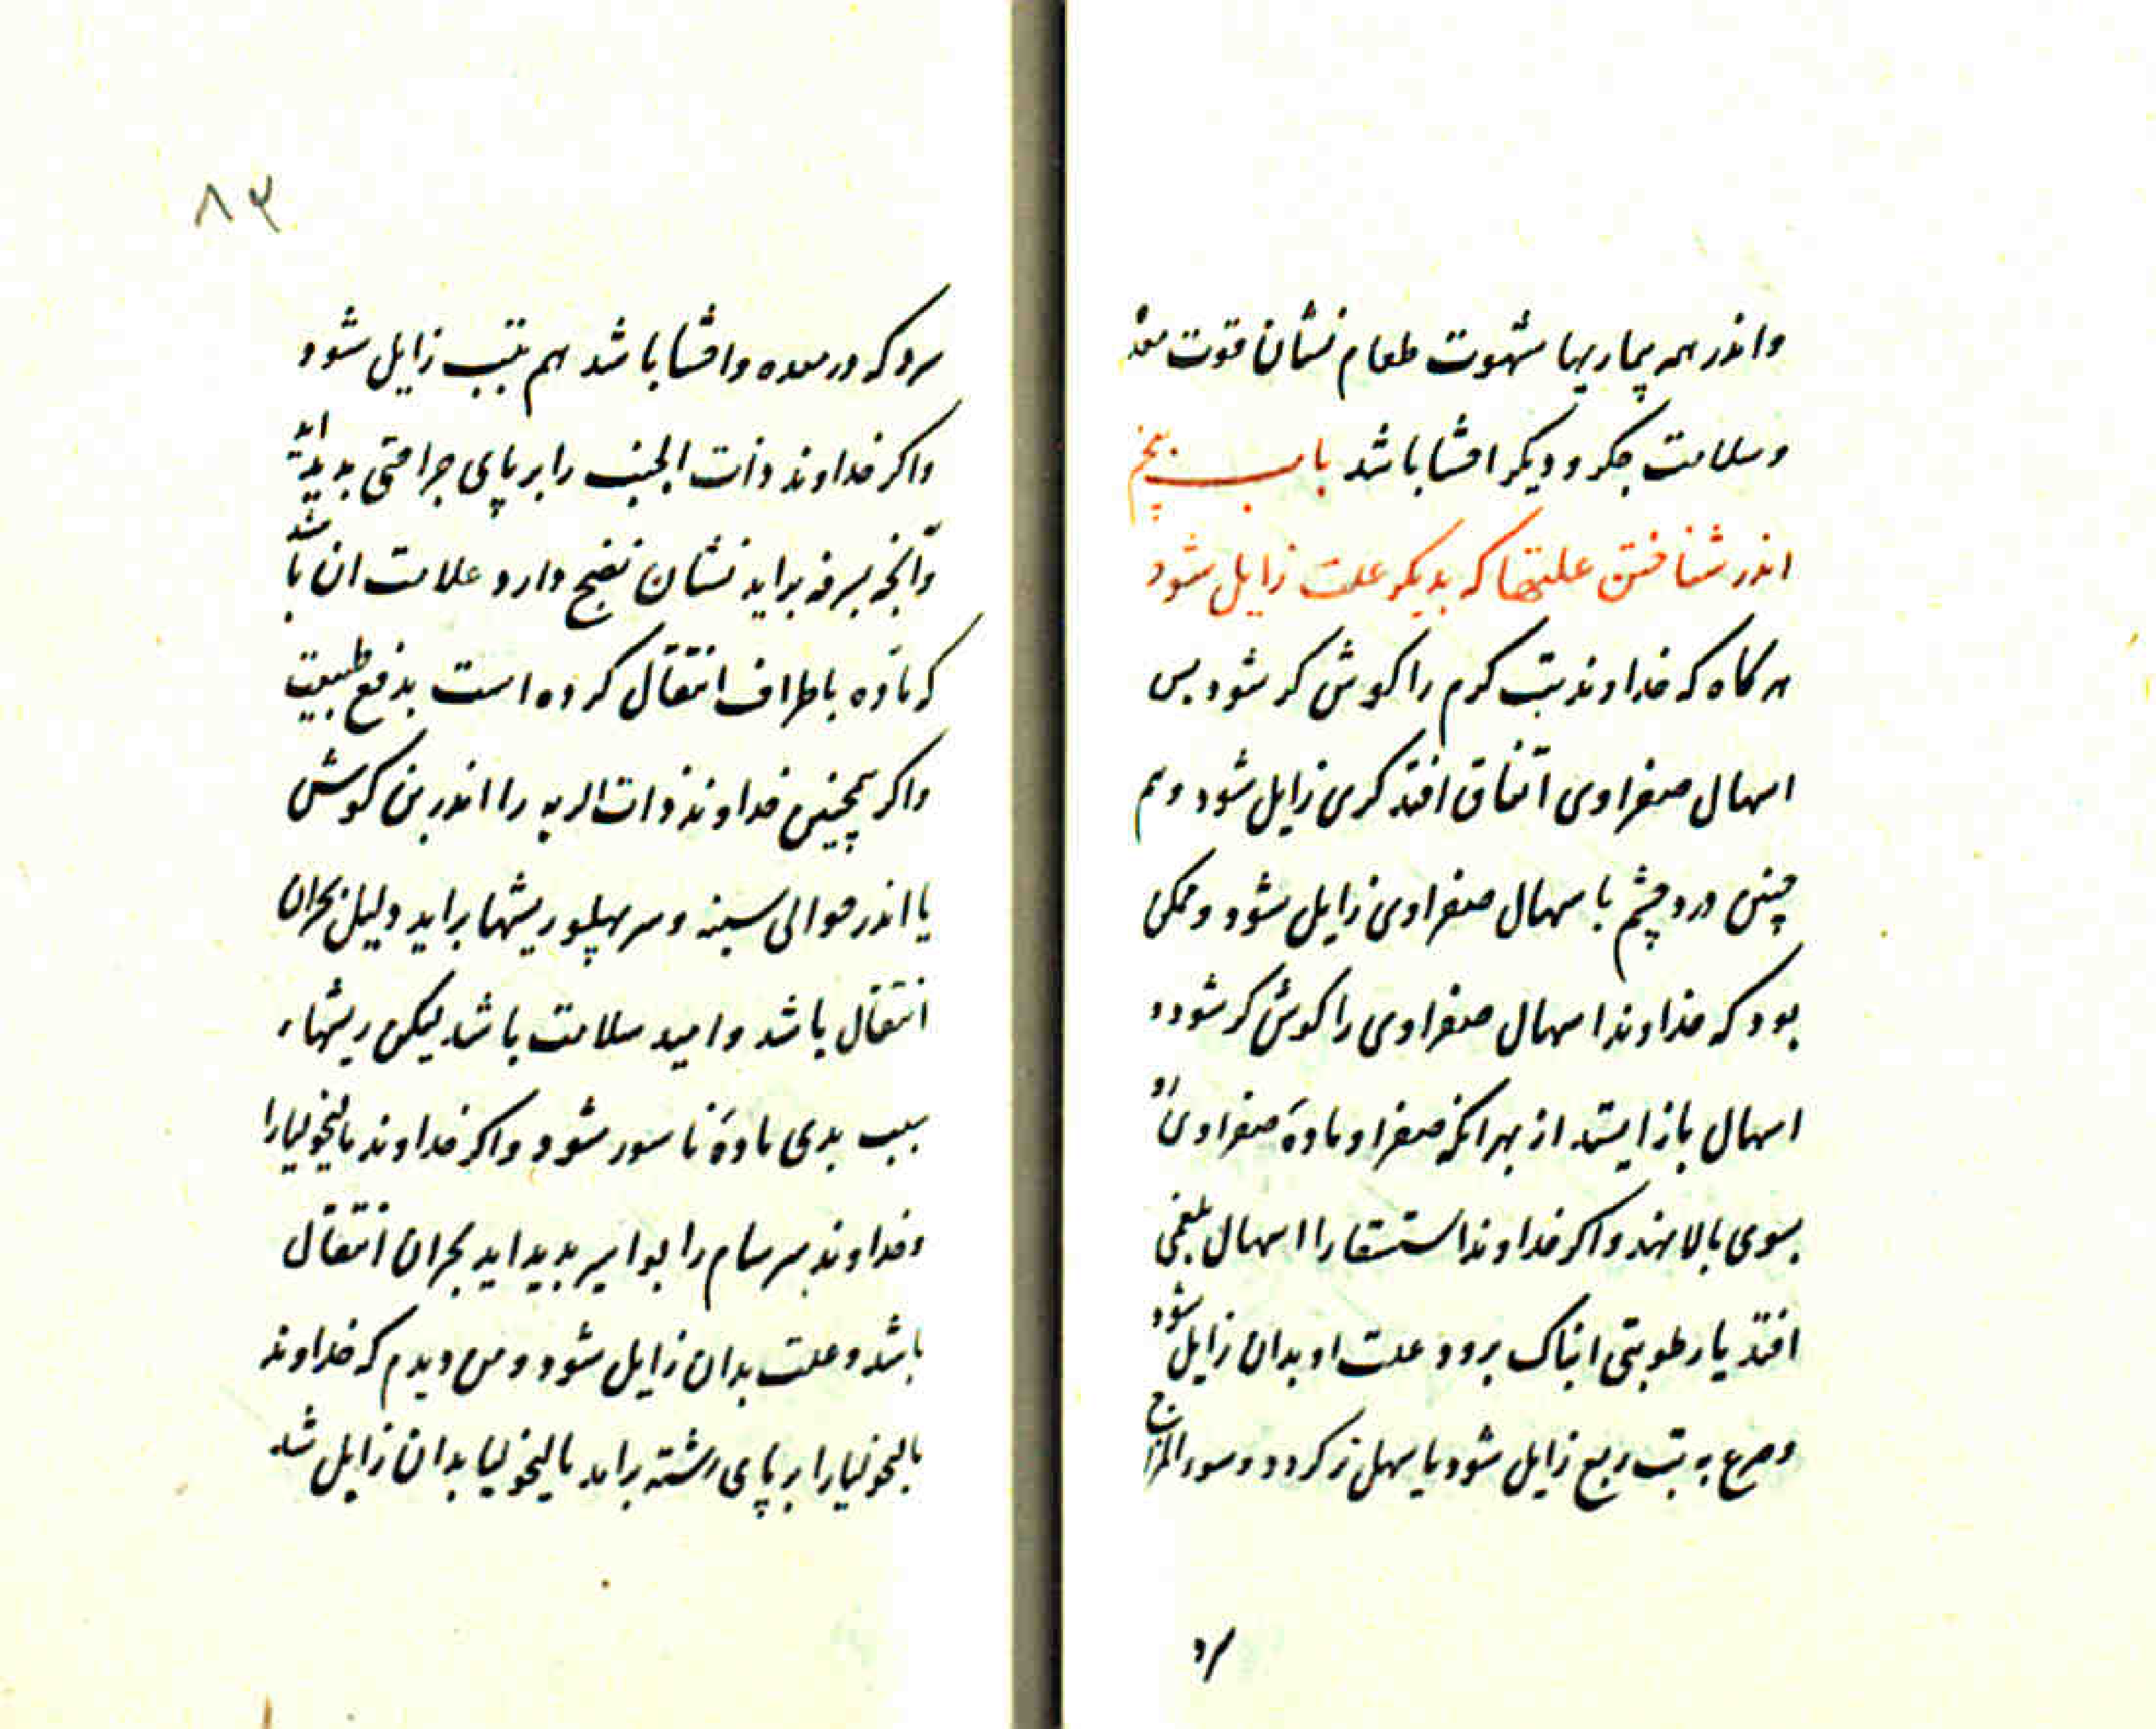 واندر همه بیماریها شهوت طعام نشان قوت معده
وسلامت جکر ودیکر احشا باشد باب پنجم
اندر شناختن علتها که بدیکر علت زایل شود
هرکاه که خداوند تب کرم را کوش کر شود بس
اسهال صفراوی اتفاق افتد کری زایل شود وهم
چنین درد چشم باسهال صفراوی زایل شود وممکن
بود که خداوند اسهال صفراوی را کوش کر شود و
اسهال باز ایستد از بهر انکه صفرا ومادهٔ صفراوی رو
بسوی بالا نهد واکر خداوند استسقا را اسهال بلغمی
افتد یا رطوبتی ابناک برود علت او بدان زایل شود
وصرع به تب ربع زایل شود یا سهل تر کردد وسوء المزاج
سرد
۸۳
سرد که در معده واحشا باشد هم بتب زایل شود
واکر خداوند ذات الجنب را بر پای جراحتی بدید اید
وآنچه بسرفه براید نشان نضج دارد علامت ان باشد
که مادّه باطراف انتقال کرده است بدفع طبیعت
واکر همچنین خداوند ذات الریه را اندر بن کوش
یا اندر حوالی سینه وسر پهلو ریشها براید دلیل بحران
انتقال باشد وامید سلامت باشد لیکن ریشها
بسبب بدی مادهٔ ناسور شود واکر خداوند مالیخولیا را
وخداوند سرسام را بواسیر بدید اید بحران انتقال
باشد وعلت بدان زایل شود ومن دیدم که خداوند
مالیخولیا را بر پای رشته برامد مالیخولیا بدان زایل شد